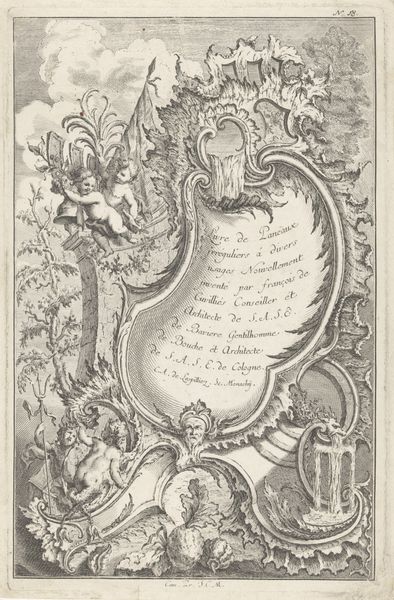 N. 18.
Livre de Paneaux
Irreguliers à divers
usages Nouvellement
inventé par François de
Cuvilliés Conseiller et
Architecte de S. A. S. E.
de Baviere Gentilhomme
de Bouche et Architecte
de S. A. S. E. de Cologne.
C. A. de sc.
Cum Pr. S. C. M.